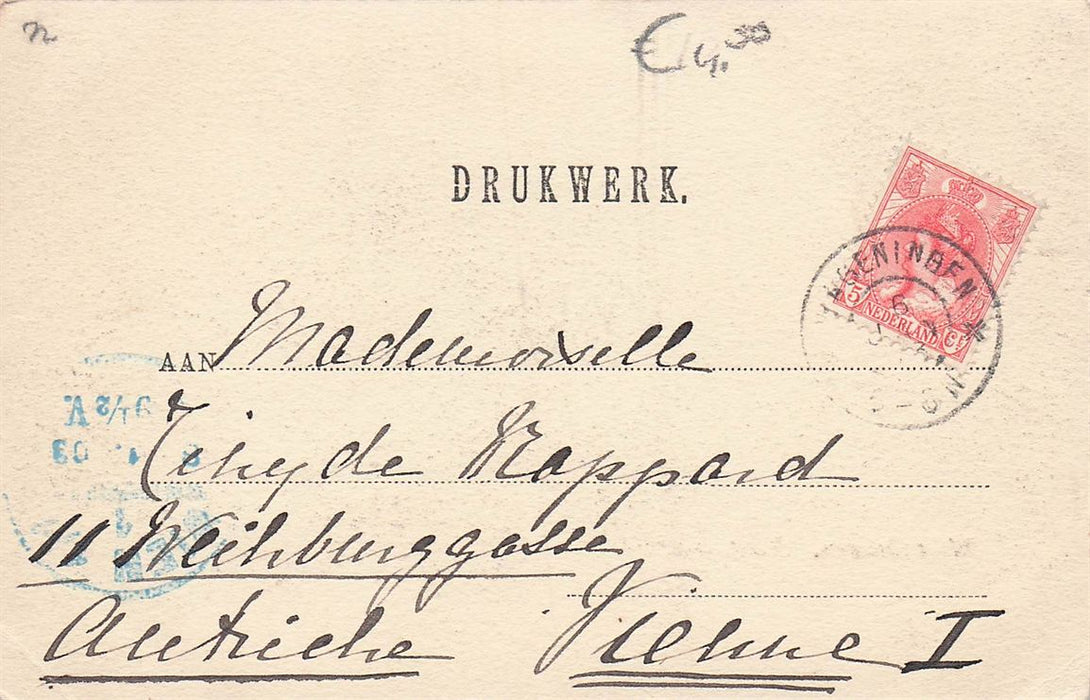 n
€ 4.50
DRUKWERK.
5 NEDERLAND Ct
AAN Mademoiselle
de Rappard
11 Weihburggasse
Autriche Vienne I
9 1/2 V.
03